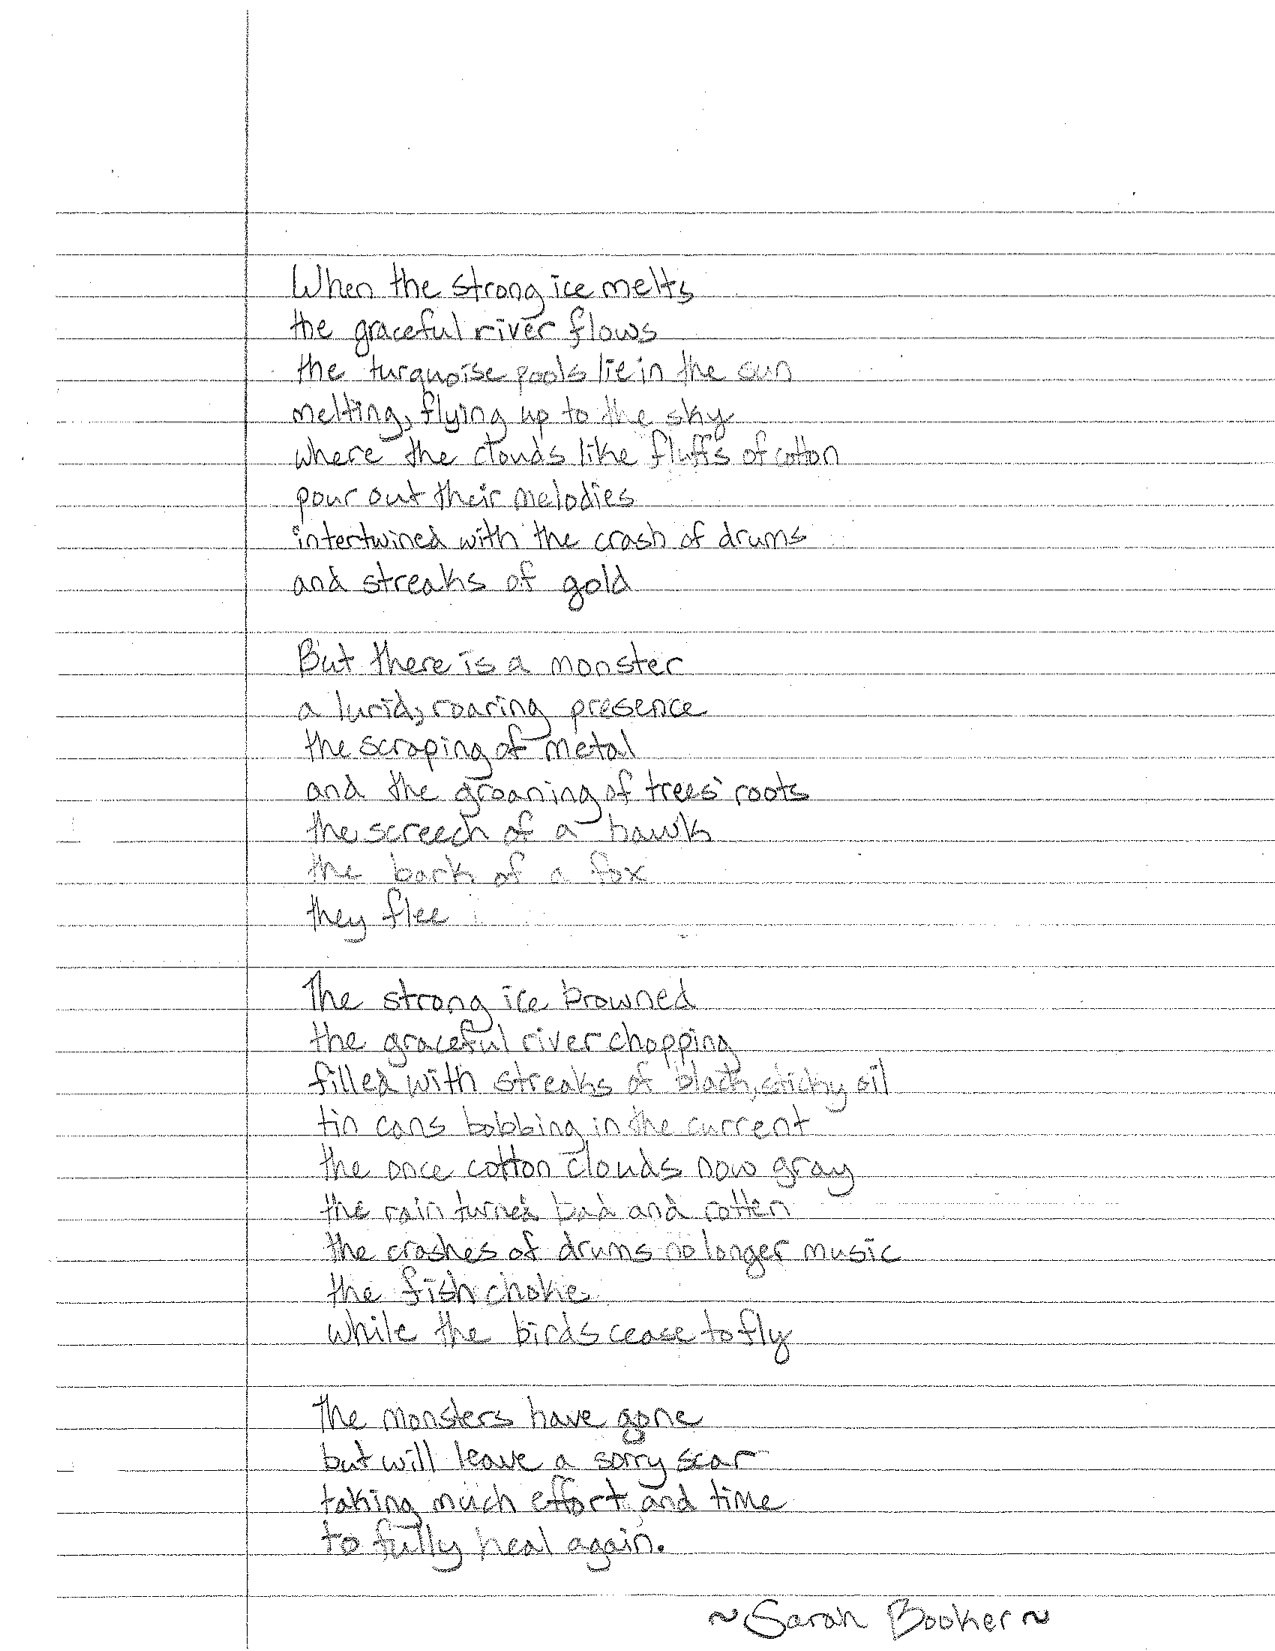 When the strong ice melts
the graceful river flows
the turquoise pools lie in the sun
melting, flying up to the sky
where the clouds like fluffs of cotton
pour out their melodies
intertwined with the crash of drums
and streaks of gold
But there is a monster
a lurid, roaring presence
the scraping of metal
and the groaning of trees' roots
the screech of a hawk
the bark of a fox
they flee
The strong ice browned
the graceful river chopping
filled with streaks of black, sticky oil
tin cans bobbing in the current
the once cotton clouds now gray
the rain turned bad and rotten
the crashes of drums no longer music
the fish choke
while the birds cease to fly
The monsters have gone
but will leave a sorry scar
taking much effort and time
to fully heal again.
~Sarah Booker~